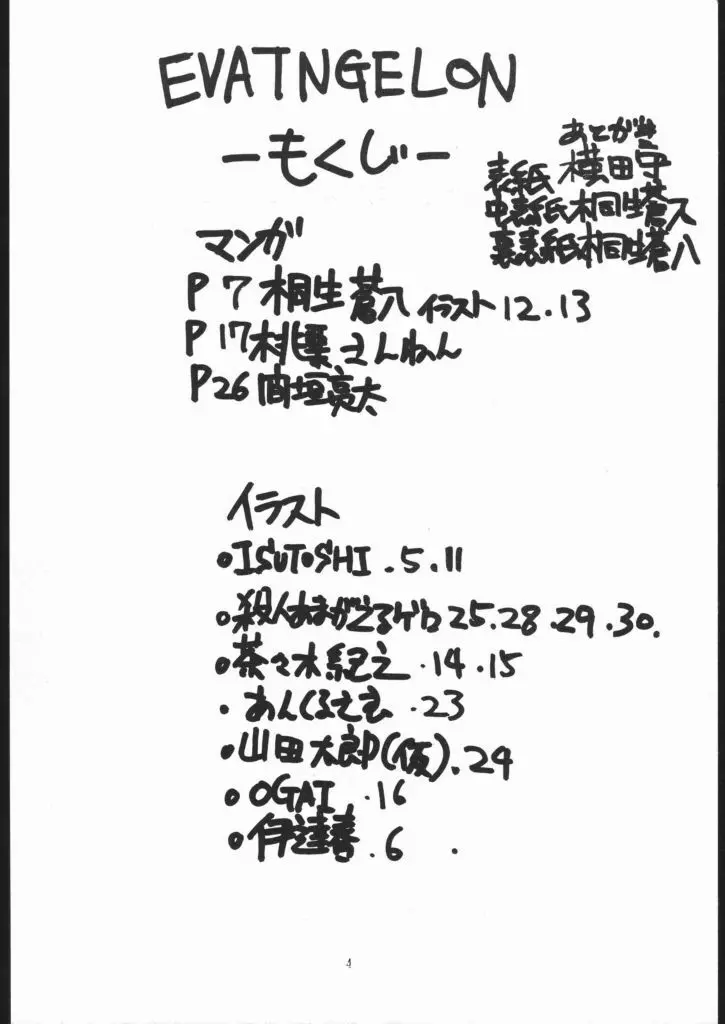 EVATNGELON
ーもくじー
あとがき
横田守
表紙
中表紙 桐生蒼八
裏表紙 桐生蒼八
マンガ
P7 桐生蒼八 イラスト12.13
P17 桃栗さんねん
P26 間垣亮太
イラスト
・ISUTOSHI.5.11
・殺人あまがえるゲロ25.28.29.30.
・茶々木紀之.14.15
・あんくるさむ.23
・山田太郎(仮).24
・OGAI.16
・伊達春.6 .
4